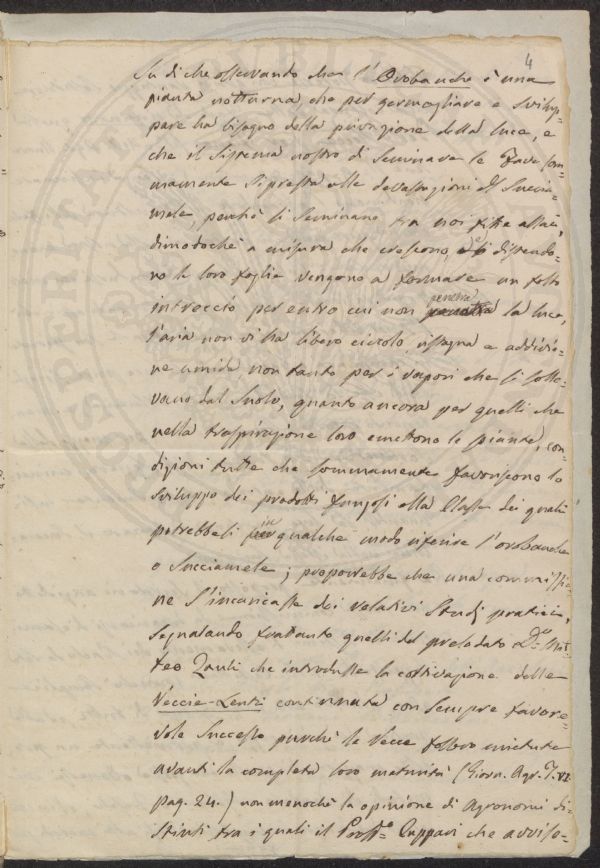 4
Su di che osservando che l'Orobanche è una
pianta notturna, che per germogliare e svilup=
pare ha bisogno della privazione della luce, e
che il sistema nostro di seminare le Fave som=
mamente si presta alle devastazioni del Succia=
mele, perché si seminano tra noi fitte assai,
dimodoché a misura che crescono, e distendo=
no le loro foglie vengono a formare un folto
intreccio per entro cui non penetra la luce,
l'aria non vi ha libero circolo, ristagna e addivie=
ne umida non tanto per i vapori che si solle=
vano dal suolo, quanto ancora per quelli che
nella traspirazione loro emettono le piante, con=
dizioni tutte che sommamente favoriscono lo
sviluppo dei prodotti fungosi alla Classe dei quali
potrebbesi in qualche modo riferire l'orobanche
o Succiamele; proporrebbe che una commissio=
ne s'incaricasse dei relativi Studj pratici,
segnalando frattanto quelli del prelodato Dre. Mat=
teo Zauli che introdusse la coltivazione delle
Veccie-Lenti continuata con sempre favore=
vole successo purché le Vecce fossero mietute
avanti la completa loro maturità (Giorn. Agr. T. VI.
pag. 24.) non menoché la opinione di Agronomi di=
stinti tra i quali il Profre. Cuppari che avvise=